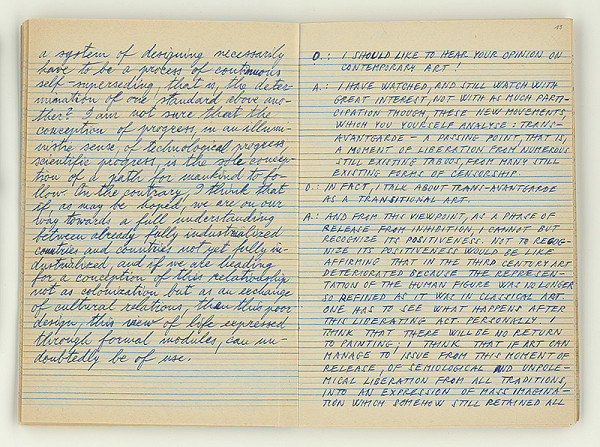 a system of designing necessarily
have to be a process of continuous
self-superseding, that is, the deter-
mination of one standard above ano-
ther? I am not sure that the
conception of progress, in an illumi-
nistic sense, of technological progress,
scientific progress, is the sole concep-
tion of a path for mankind to fo-
llow. On the contrary, I think that
if, as may be hoped, we are on our
way towards a full understanding
between already fully industrialized
countries and countries not yet fully in-
dustrialized, and if we are heading
for a conception of this relationship
not as colonization but as an exchange
of cultural relations, then this poor
design, this view of life expressed
through formal modules, can un-
doubtedly be of use.
O.: I SHOULD LIKE TO HEAR YOUR OPINION ON
CONTEMPORARY ART!
A.: I HAVE WATCHED, AND STILL WATCH WITH
GREAT INTEREST, NOT WITH AS MUCH PARTI-
CIPATION THOUGH, THESE NEW MOVEMENTS,
WHICH YOU YOURSELF ANALYSE: TRANS-
AVANTGARDE - A PASSING POINT, THAT IS,
A MOMENT OF LIBERATION FROM NUMEROUS
STILL EXISTING TABUOS, FROM MANY STILL
EXISTING FORMS OF CENSORSHIP.
O.: IN FACT, I TALK ABOUT TRANS-AVANTGARDE
AS A TRANSITIONAL ART.
A.: AND FROM THIS VIEWPOINT, AS A PHASE OF
RELEASE FROM INHIBITION, I CANNOT BUT
RECOGNIZE ITS POSITIVENESS. NOT TO RECOG-
NIZE ITS POSITIVENESS WOULD BE LIKE
AFFIRMING THAT IN THE THIRD CENTURY ART
DETERIORATED BECAUSE THE REPRESEN-
TATION OF THE HUMAN FIGURE WAS NO LONGER
SO REFINED AS IT WAS IN CLASSICAL ART.
ONE HAS TO SEE WHAT HAPPENS AFTER
THIS LIBERATING ACT. PERSONALLY I
THINK THAT THERE WILL BE NO RETURN
TO PAINTING; I THINK THAT IF ART CAN
MANAGE TO ISSUE FROM THIS MOMENT OF
RELEASE, OF SEMIOLOGICAL AND UNPOLE-
MICAL LIBERATION FROM ALL TRADITIONS,
INTO AN EXPRESSION OF MASS IMAGINA-
TION WHICH SOMEHOW STILL RETAINED ALL